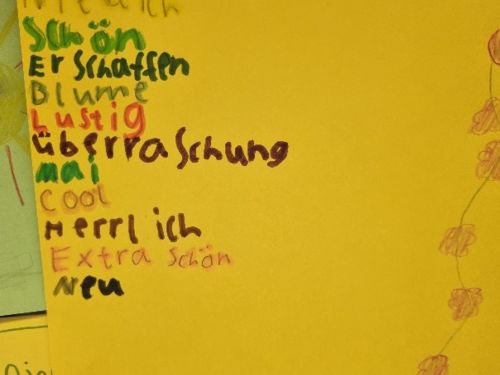 Niedlich
Schön
Erschaffen
Blume
Lustig
überraschung
mai
Cool
Herrlich
Extra schön
Neu